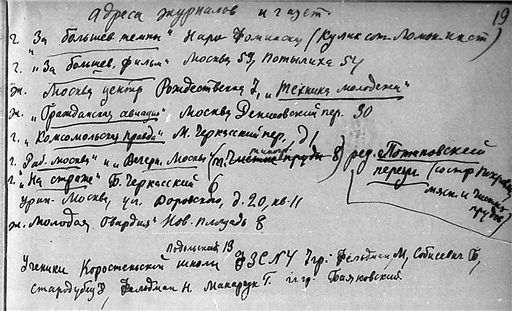 Адреса журналов и газет. 19
г. "За большев. темпы" Наро Фоминск (Кулик
г. "За большев. фильм" Москва 59, Потылиха 54
ж. Москва центр Рождественка 7, "Техника молодежи"
ж. "Гражданская авиация", Москва Денисовский пер. 30
г. "Комсомольская правда" М. Черкасский пер., д 1
г. Раб. Москва" и "Вечерн. Москва" пруды 8) ред. Потаповский
г. "На страже" Б. Черкасский 6 переул.
Москва, ул. Воровского, д. 20, кв. 11
ж. Молодая Гвардия" Нов. площадь 8
Подольский 13
Ученики Коростенской школы ФЗС №4 7 гр: Фельдман М, Собисевич Б,
Стародубец, Фельдман Н. Макарчук Г. гр. Баяковский.